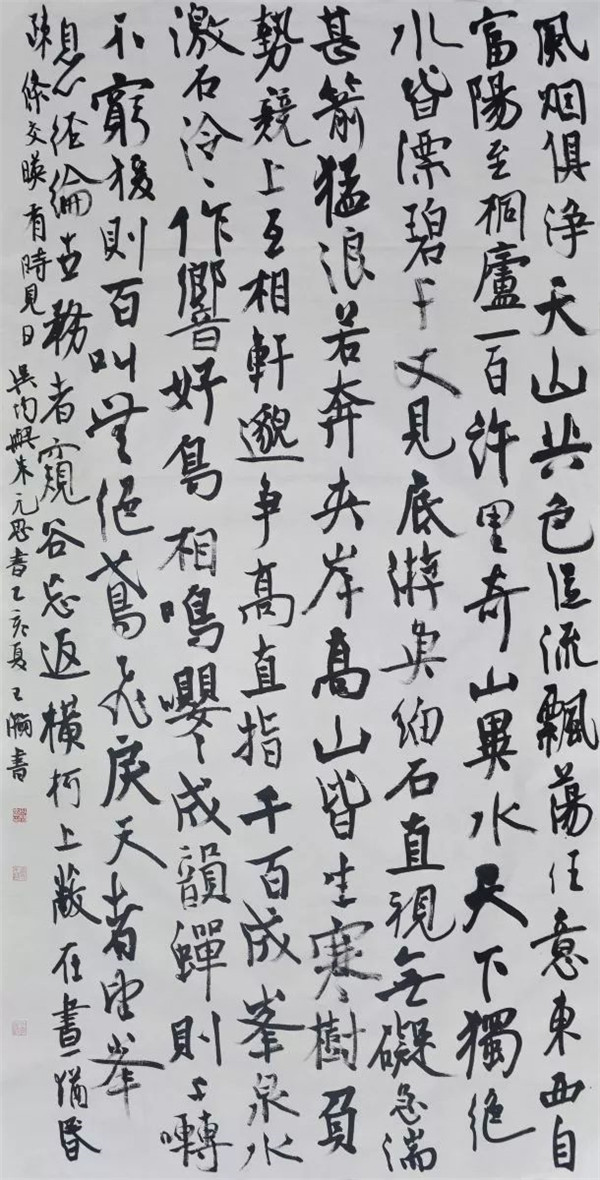 風烟俱淨天山共色從流飄蕩任意東西自
富陽至桐廬一百許里奇山異水天下獨絕
水皆漂碧千丈見底游魚細石直視無礙急湍
甚箭猛浪若奔夾岸高山皆生寒樹負
勢競上互相軒邈爭高直指千百成峯泉水
激石泠〻作響好鳥相鳴嚶〻成韻蟬則千囀
不窮猨則百叫無絕鳶飛戾天者望峯
息心經綸世務者窺谷忘返橫柯上蔽在晝猶昏
疎條交暎有時見日 吳均與朱元思書 亥夏 書